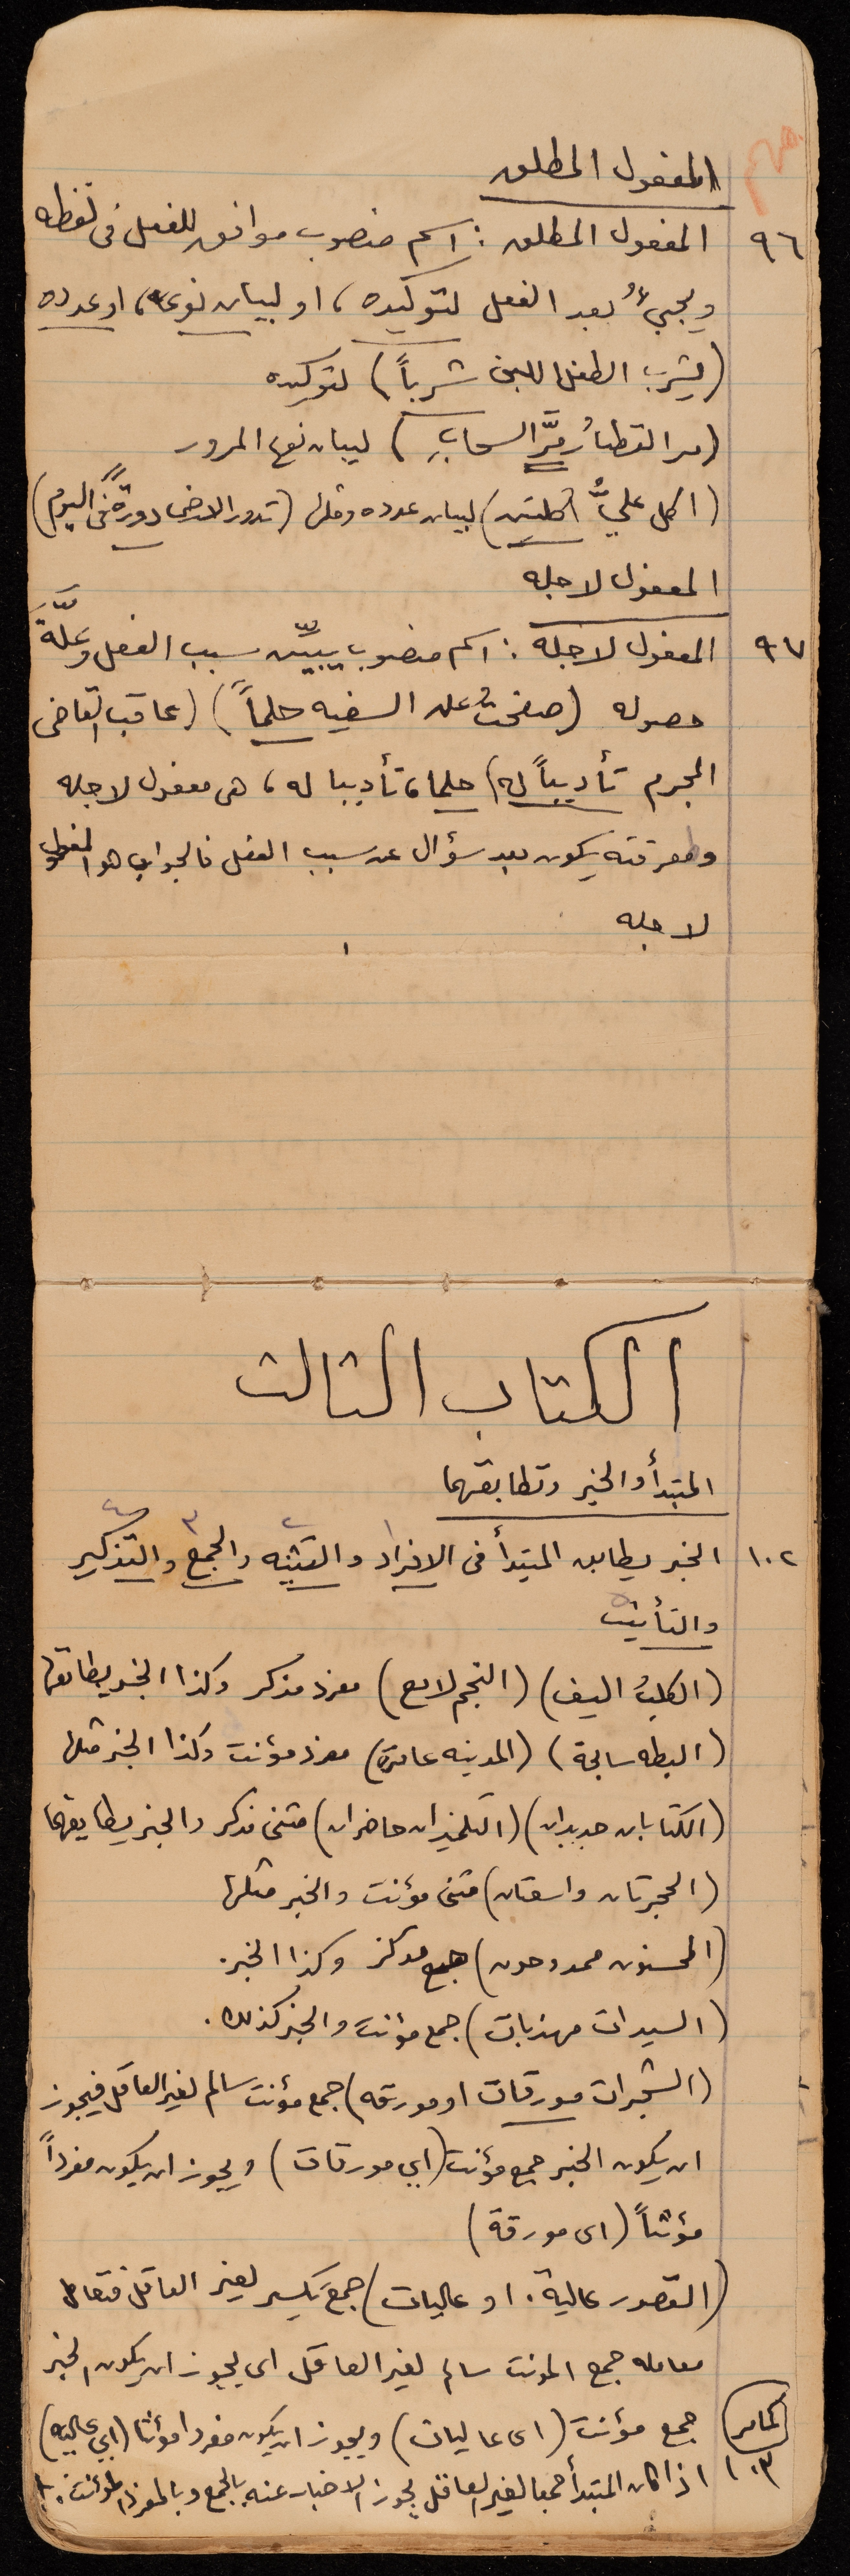 مهم
المفعول المطلق
٩٦ المفعول المطلق : اسم منصوب موافق للفعل فى لفظه
ويجيءُ بعد الفعل لتوكيده، او لبيان نوعه، او عدده
(يشرب الطفل اللبن شرباً) لتوكيده
(مر القطارُ مرَّ السحابِ) لبيان نوع المرور
(اكل عليٌّ اكلتين) لبيان عدده ومثلها (تدور الارض دورةً فى اليوم)
المفعول لاجله
٩٧ المفعول لاجله : اسم منصوب يبيّن سبب الفعل وعلّةَ
حصوله (صفحتُ عن السفيه حلماً) (عاقب القاضى
المجرم تأديباً له) حلما، تأديبا له، هى مفعول لاجله
ومعرفته يكون بعد سؤال عن سبب الفعل فالجواب هو المفعول
لاجله
الكتاب الثالث
المبتدأ والخبر وتطابقهما
١ ٢ ٣ ٤
١٠٢ الخبر يطابق المبتدأ فى الافراد والتثنيه والجمع والتذكير
والتأنيث
(الكلبُ اليف) (النجم لامع) مفرد مذكر وكذا الخبر يطابقها
(البطه سابحة) (المدينه عامرة) مفرد مؤنث وكذا الخبر مثلها
(الكتابان جديدان) (التلميذان حاضران) مثنى مذكر والخبر يطابقهما
(الحجرتان واسعتان) مثنى مؤنث والخبر مثلها
(المحسنون ممدوحون) جمع مذكر وكذا الخبر.
(السيدات مهذبات) جمع مؤنث والخبر كذلك.
(الشجرات مورقات او مورقه) جمع مؤنث سالم لغير العاقل فيجوز
ان يكون الخبر جمع مؤنث (اي مورقات) ويجوز ان يكون مفرداً
مؤنثاً (اى مورقة)
(القصور عالية. او عاليات) جمع تكسير لغير العاقل فتعامل
معامله جمع المونث سالم لغير العاقل اى يجوز ان يكون الخبر
جمع مؤنث (اى عاليات) ويجوز ان يكون مفردا مؤنثا (اي عاليه)
١٠٣ اذا كان المبتدأ جمعا لغير العاقل يجوز الاخبار عنه بالجمع وبالمفرد المؤنث.